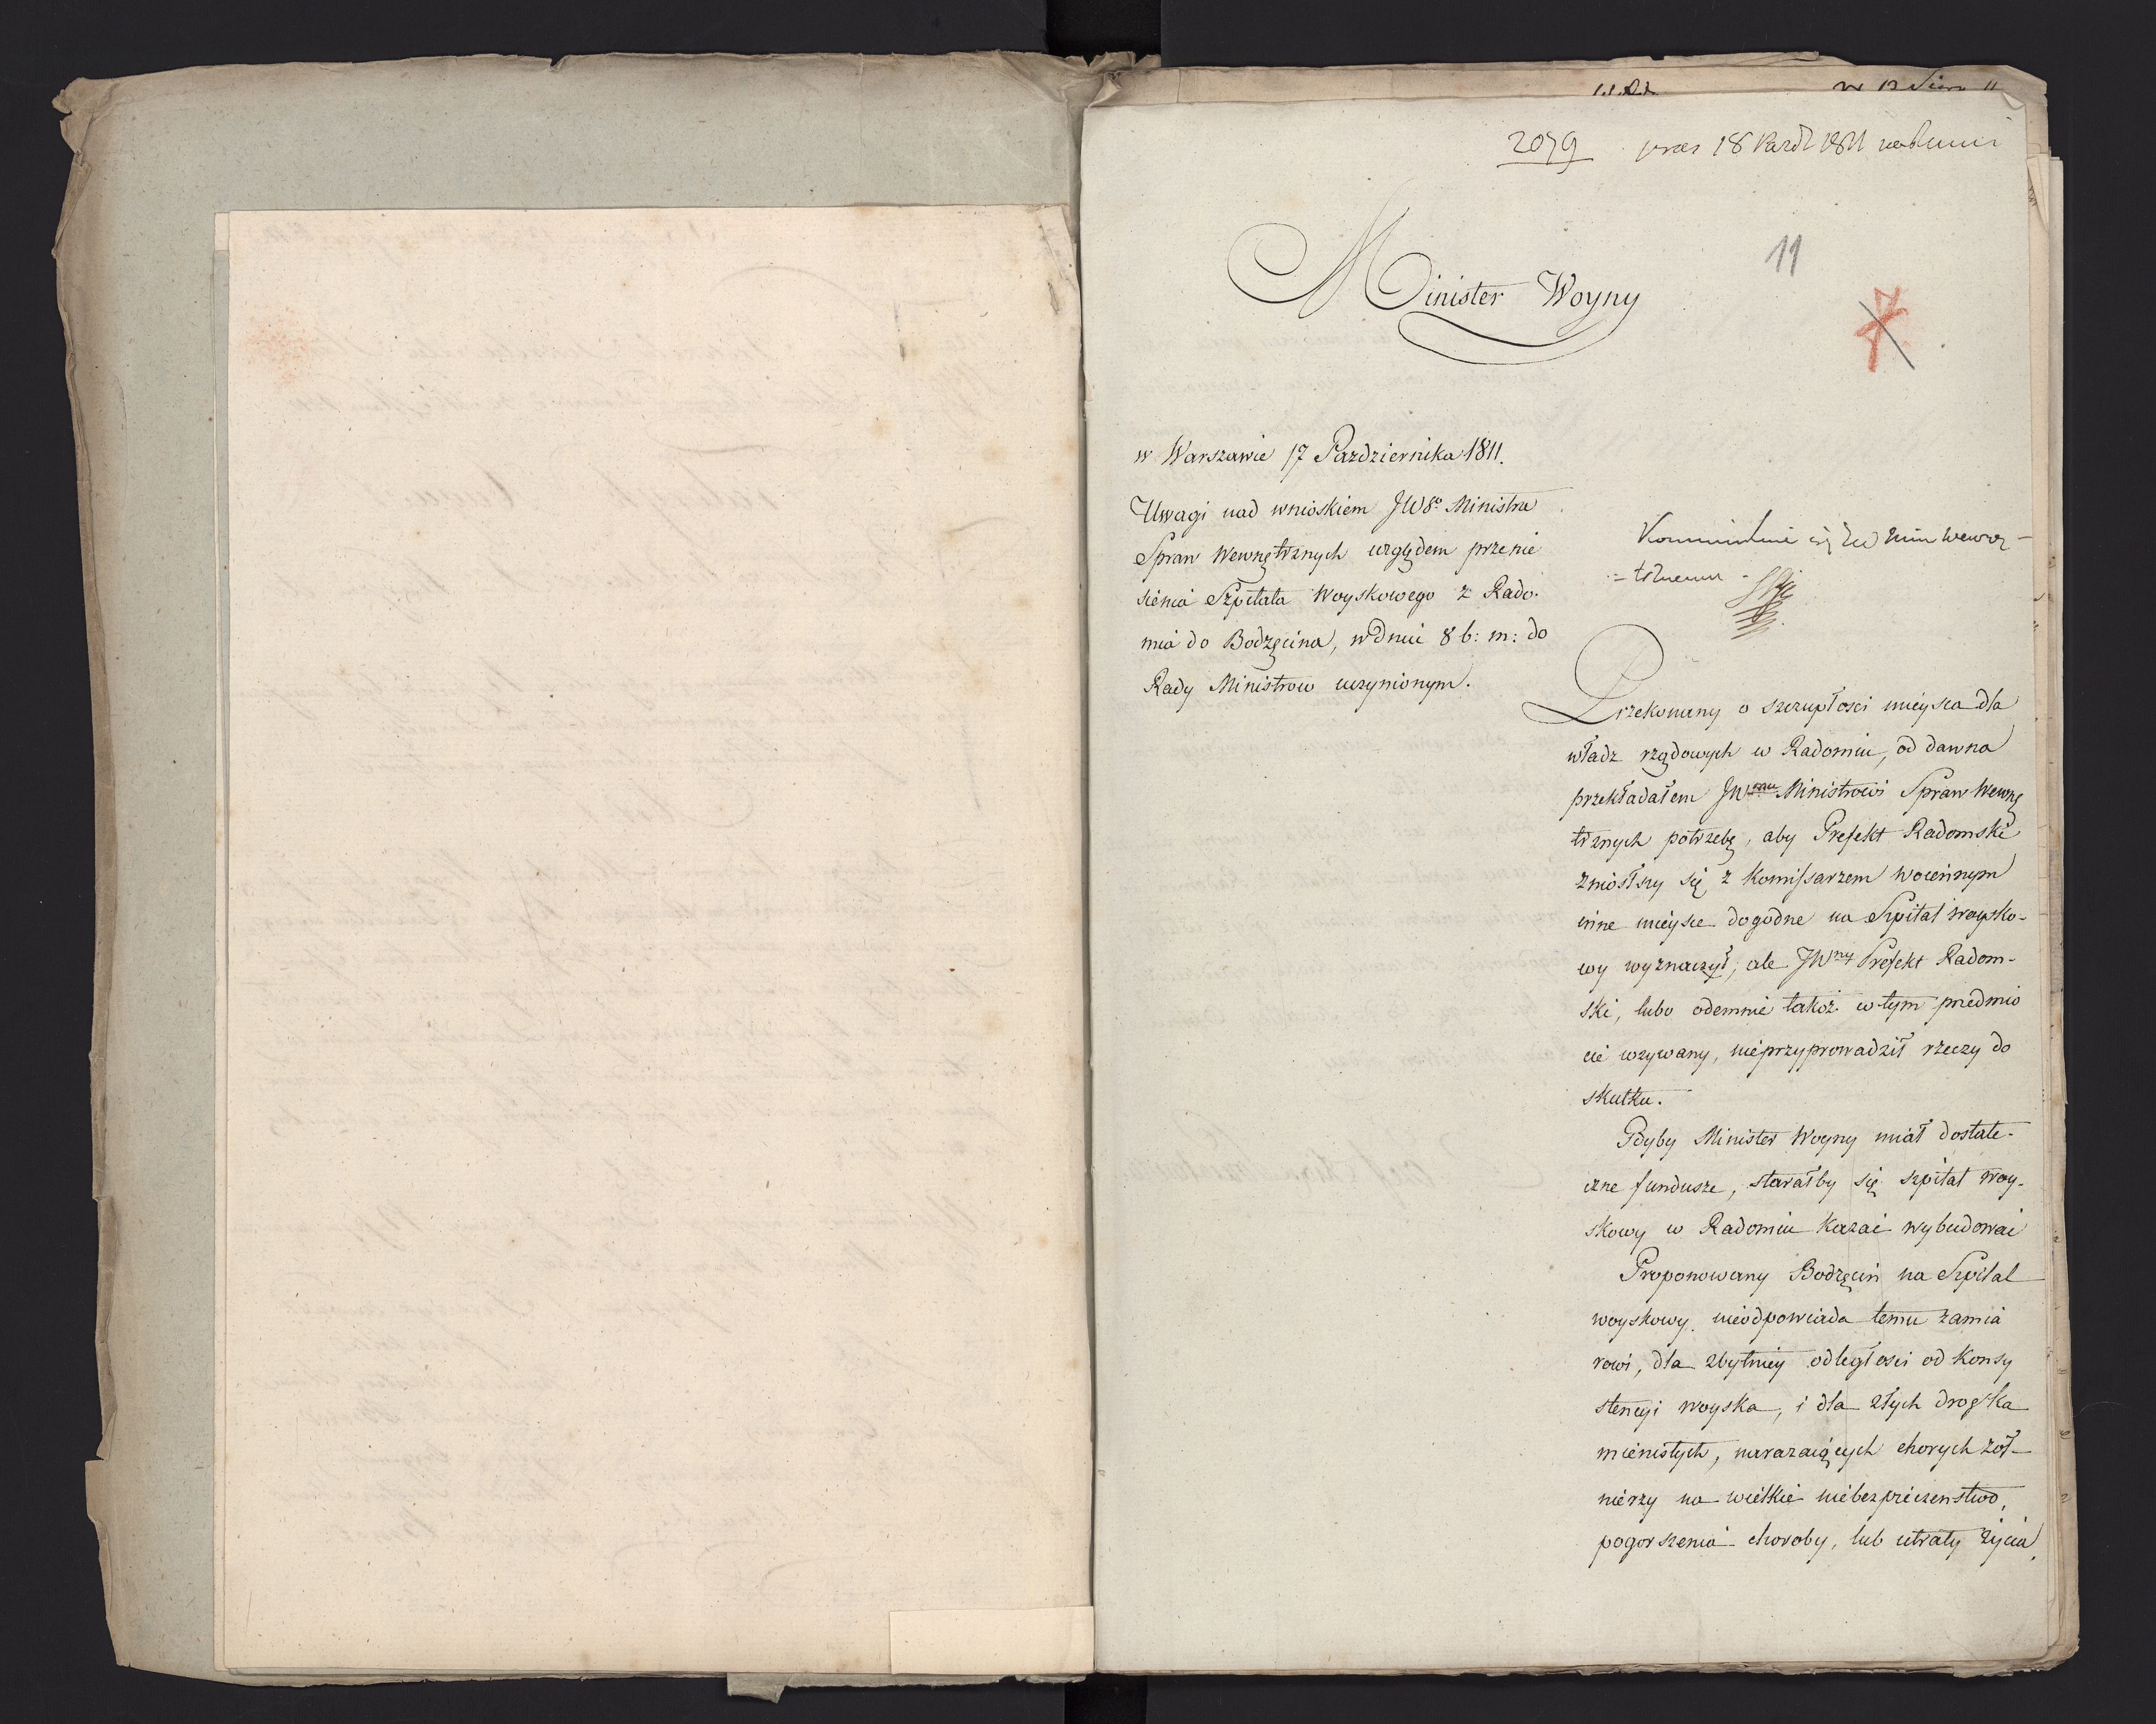 2079 praes 18 Paźdz 1811
11
7
Minister Woyny
w Warszawie 17 Pazdziernika 1811.
Uwagi nad wnioskiem JWgo Ministra
Spraw Wewnętrznych względem przenie
sienia Szpitala Woyskowego z Rado-
mia do Bodzęcina, w dniu 8 b: m: do
Rady Ministrow uczynionym.
Kommunikuie się
Przekonany o szczupłosci mieysca dla
władz rządowych w Radomiu, od dawna
przekładałem JWmu Ministrowi Spraw Wewnę
trznych potrzebę, aby Prefekt Radomski
zniosłszy się z Komissarzem woiennym
inne mieysce dogodne na Szpital woysko-
wy wyznaczył; ale JWny Prefekt Radom-
ski, lubo odemnie także w tym przedmio
cie wzywany, nieprzyprowadził rzeczy do
skutku.
Gdyby Minister Woyny miał dostate-
czne fundusze, starałby się szpital woy-
skowy w Radomiu kazać wybudować
Proponowany Bodzęcin na Szpital
woyskowy nieodpowiada temu zamia
rowi, dla zbytniey odległosci od Konsy
stencyi woyska, i dla złych drog ka
mienistych, narażaiących chorych żoł-
nierzy na wielkie niebezpieczenstwo,
pogorszenia choroby, lub utraty życia,